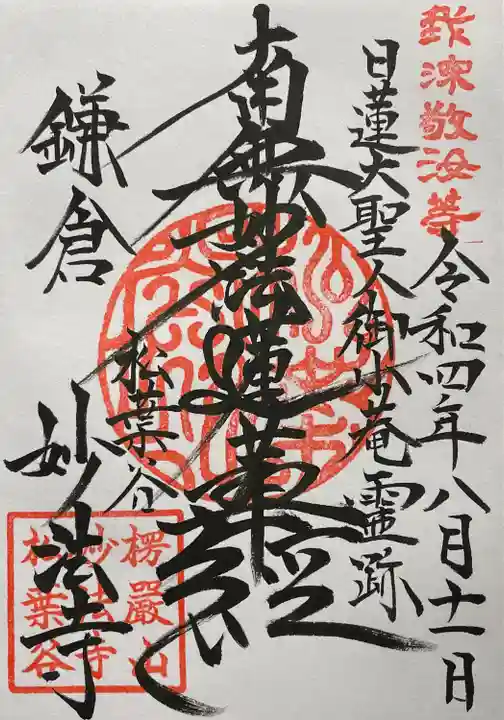 令和四年八月十一日
日蓮大聖人御小菴霊跡
南無妙法蓮華経
松葉谷
鎌倉
妙法寺
楞嚴山
妙法寺
松葉谷